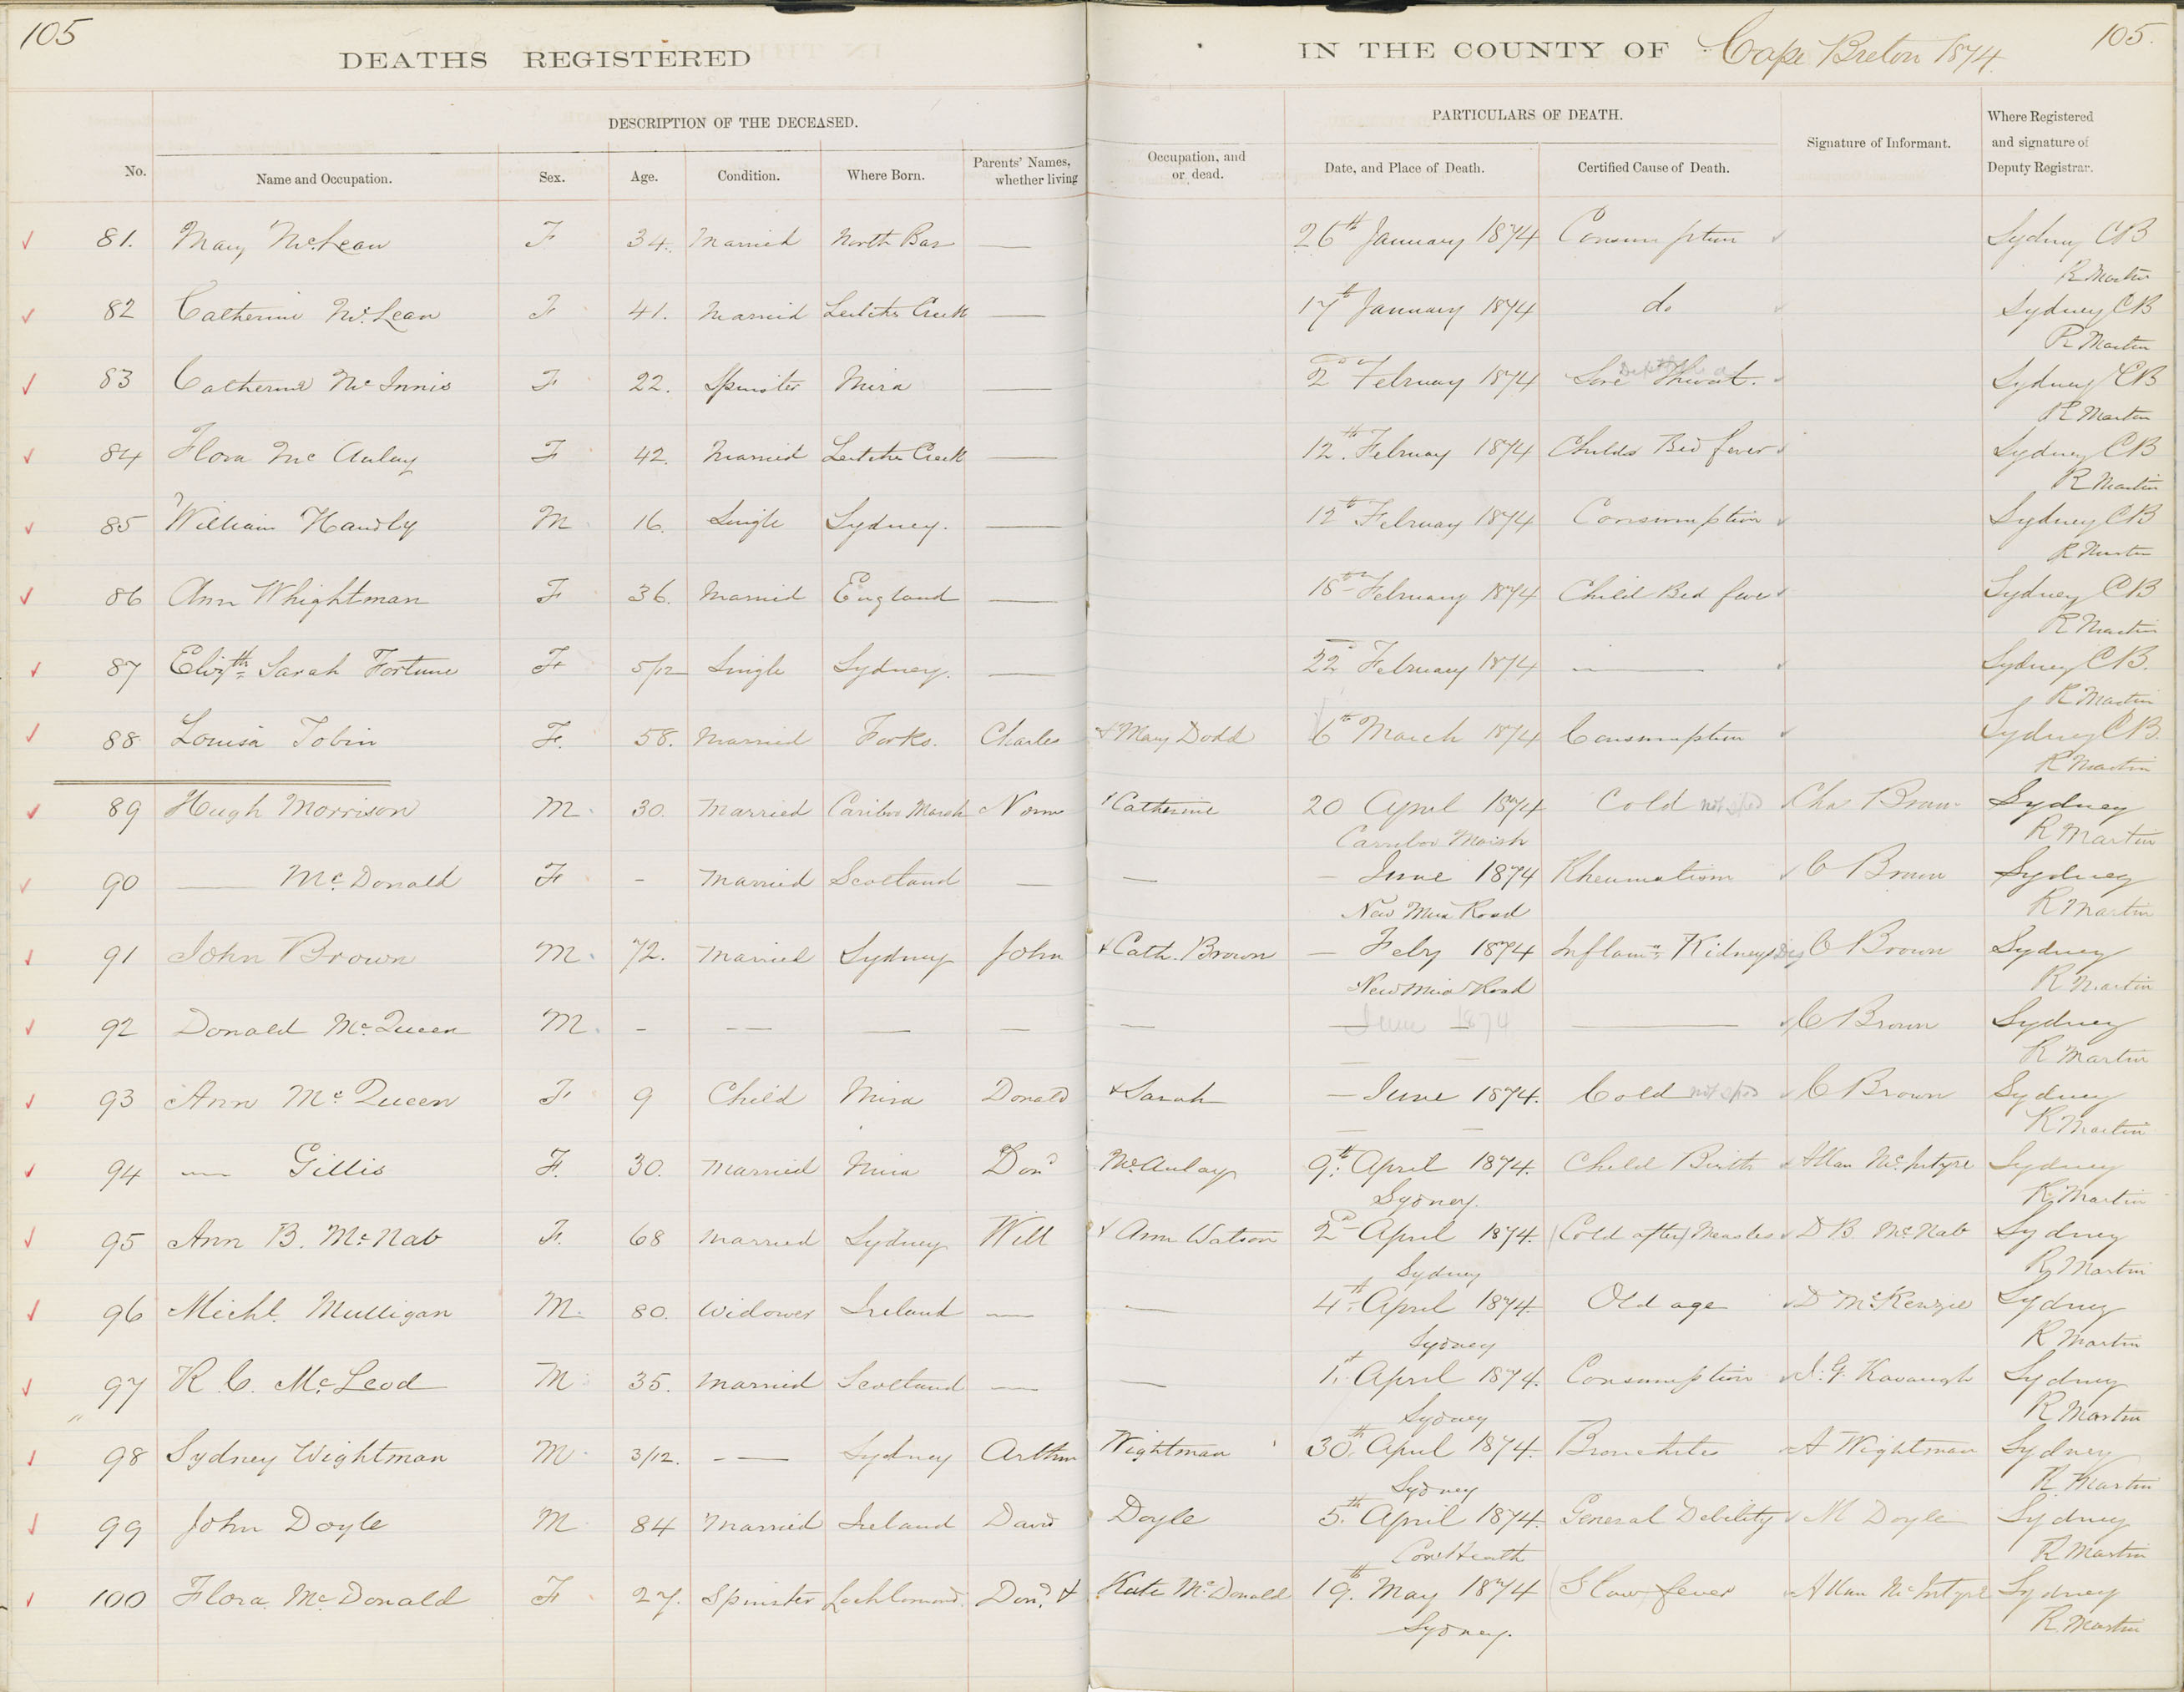 105
DEATHS REGISTERED IN THE COUNTY OF Cape Breton 1874.
105.
DESCRIPTION OF THE DECEASED. PARTICULARS OF DEATH.
No. Name and Occupation. Sex. Age. Condition. Where Born. Parents' Names, whether living Occupation, and or dead. Date, and Place of Death. Certified Cause of Death. Signature of Informant. Where Registered and signature of Deputy Registrar.
81. Mary McLean F 34. Married North Bar — 26th January 1874 Consumption Sydney CB
R Martin
82 Catherine McLean F 41. Married Leitches Creek — 17th January 1874 do Sydney CB
R Martin
83 Catherine McInnis F 22. Spinster Mira — 2nd February 1874 Sore Throat. Sydney CB
R Martin
84 Flora McAulay F 42. Married Leitches Creek — 12th February 1874 Childs Bed fever Sydney CB
R Martin
85 William Handly M 16. Single Sydney. — 12th February 1874 Consumption Sydney CB
R Martin
86 Ann Whightman F 36. Married England — 18th February 1874 Child Bed fever Sydney CB
R Martin
87 Elizth Sarah Fortune F 5/12 Single Sydney. — 22 February 1874 — Sydney CB.
R Martin
88 Louisa Tobin F. 58. Married Forks. Charles & Mary Dodd 6th March 1874 Consumption Sydney CB.
R Martin
89 Hugh Morrison M. 30. Married Cariboo Marsh Norm Catherine 20 April 1874 Cold not spd Chs Brown Sydney
Carriboo Marsh R Martin
90 — McDonald F - Married Scotland — — — June 1874 Rheumatism C Brown Sydney
New Mira Road R Martin
91 John Brown M. 72. Married Sydney John & Cath. Brown — Feby 1874 Inflamn Kidneys C Brown Sydney
New Mira Road R Martin
92 Donald McQueen M. - - — — — — June 1874 — C Brown Sydney
— — R Martin
93 Ann McQueen F 9 Child Mira Donald & Sarah — June 1874. Cold not spd C Brown Sydney
— — R Martin
94 — Gillis F. 30. Married Mira Dond McAulay 9th April 1874. Child Birth Allan McIntyre Sydney
Sydney. R. Martin
95 Ann B. McNab F. 68 Married Sydney Will & Ann Watson 2d April 1874. (Cold after) Measles D B McNab Sydney
Sydney R Martin
96 Michl. Mulligan M. 80. Widower Ireland — — 4th April 1874. Old age D McKenzie Sydney
Sydney R Martin
97 R. C. McLeod M 35. Married Scotland — — 1st April 1874. Consumption J. G. Kavanagh Sydney
Sydney R Martin
98 Sydney Wightman M 3/12. - — Sydney Arthur Wightman 30th April 1874. Bronchitis A Wightman Sydney
Sydney R. Martin
99 John Doyle M 84 Married Ireland David Doyle 5th April 1874. General Debility M Doyle Sydney
Coxheath R Martin
100 Flora McDonald F 27. Spinster Lochlomond Dond. & Kate McDonald 19th May 1874 Slow fever Allan McIntyre Sydney
Sydney. R. Martin